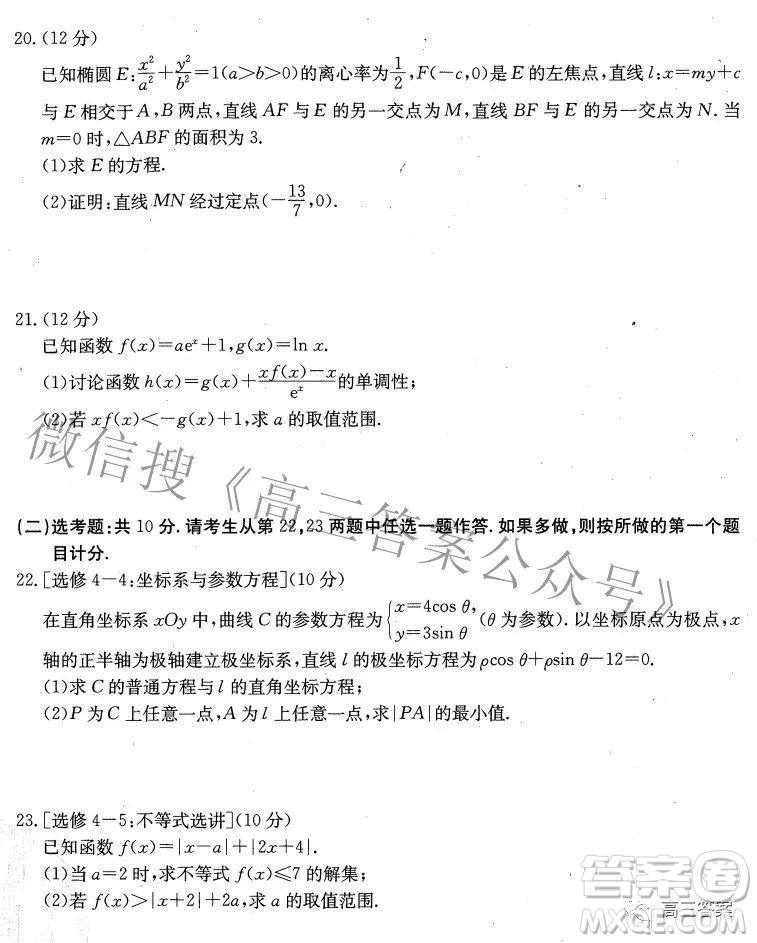 20.(12分)
已知椭圆 E:x²/a²+y²/b²=1(a>b>0)的离心率为1/2,F(-c,0)是 E 的左焦点,直线 l:x=my+c
与 E 相交于 A,B 两点,直线 AF 与 E 的另一交点为 M,直线 BF 与 E 的另一交点为 N. 当
m=0 时,△ABF 的面积为 3.
(1)求 E 的方程.
(2)证明:直线 MN 经过定点(-13/7,0).
21.(12分)
已知函数 f(x)=aeˣ+1,g(x)=ln x.
(1)讨论函数 h(x)=g(x)+(xf(x)-x)/eˣ 的单调性;
(2)若 xf(x)<-g(x)+1,求 a 的取值范围.
微信搜《高三答案公众号》
(二)选考题:共 10 分. 请考生从第 22,23 两题中任选一题作答. 如果多做,则按所做的第一个题
目计分.
22.[选修 4-4:坐标系与参数方程](10分)
在直角坐标系 xOy 中,曲线 C 的参数方程为{x=4cos θ, y=3sin θ (θ 为参数). 以坐标原点为极点,x
轴的正半轴为极轴建立极坐标系,直线 l 的极坐标方程为 ρcos θ+ρsin θ-12=0.
(1)求 C 的普通方程与 l 的直角坐标方程;
(2)P 为 C 上任意一点,A 为 l 上任意一点,求|PA|的最小值.
23.[选修 4-5:不等式选讲](10分)
已知函数 f(x)=|x-a|+|2x+4|.
(1)当 a=2 时,求不等式 f(x)≤7 的解集;
(2)若 f(x)>|x+2|+2a,求 a 的取值范围.
答案圈
高三答案
MXQE.COM